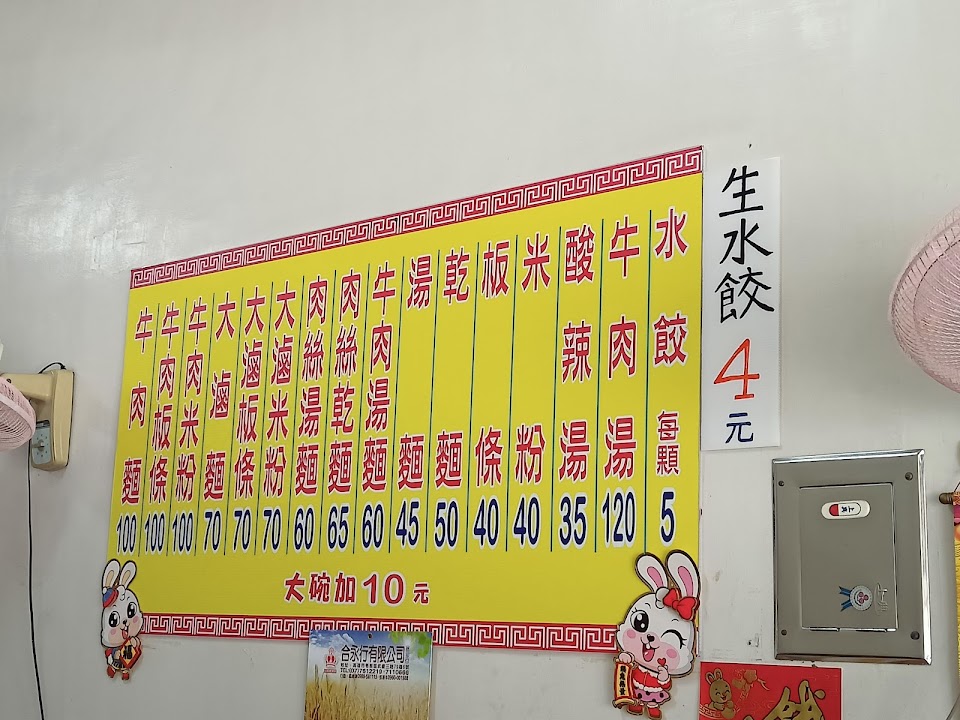 水餃 每顆 5
牛肉湯 120
酸辣湯 35
米粉 40
板條 40
乾麵 50
湯麵 45
牛肉湯麵 60
肉絲乾麵 65
肉絲湯麵 60
大滷米粉 70
大滷板條 70
大滷麵 70
牛肉米粉 100
牛肉板條 100
牛肉麵 100
大碗加10元
生水餃 4元
合永行有限公司